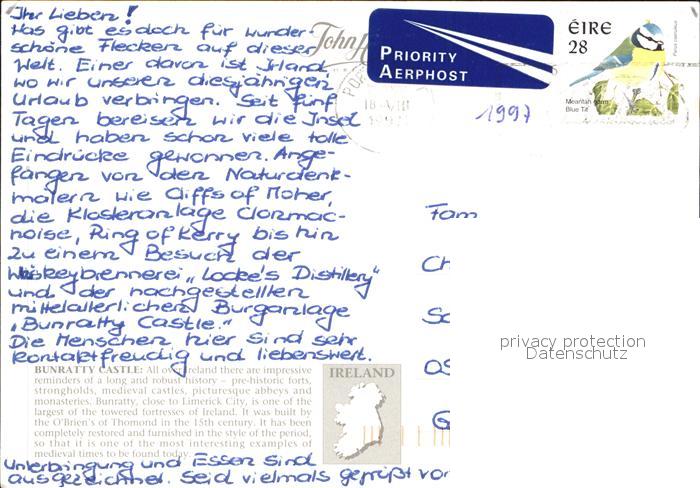 Ihr Lieben!
Was gibt es doch für wunder-
schöne Flecken auf dieser
Welt. Einer davon ist Irland
wo wir unseren diesjährigen
Urlaub verbringen. Seit fünf
Tagen bereisen wir die Insel
und haben schon viele tolle
Eindrücke gewonnen. Ange-
fangen von den Naturdenk-
mälern wie Cliffs of Moher,
die Klosteranlage Clonmac-
noise, Ring of Kerry bis hin
zu einem Besuch der
Whiskeybrennerei „Locke's Distillery"
und der nachgestellten
mittelalterlichen Burganlage
„Bunratty Castle."
Die Menschen hier sind sehr
kontaktfreudig und liebenswert.
BUNRATTY CASTLE: All over Ireland there are impressive
reminders of a long and robust history – pre-historic forts,
strongholds, medieval castles, picturesque abbeys and
monasteries. Bunratty, close to Limerick City, is one of the
largest of the towered fortresses of Ireland. It was built by
the O'Brien's of Thomond in the 15th century. It has been
completely restored and furnished in the style of the period,
so that it is one of the most interesting examples of
medieval times to be found today.
Unterbringung und Essen sind
ausgezeichnet. Seid vielmals gegrüßt von
IRELAND
John
PRIORITY
AERPHOST
1997
ÉIRE
28
Meantán gorm
Blue Tit
Parus caeruleus
Fam
Ch
Sc
OS
G
privacy protection
Datenschutz